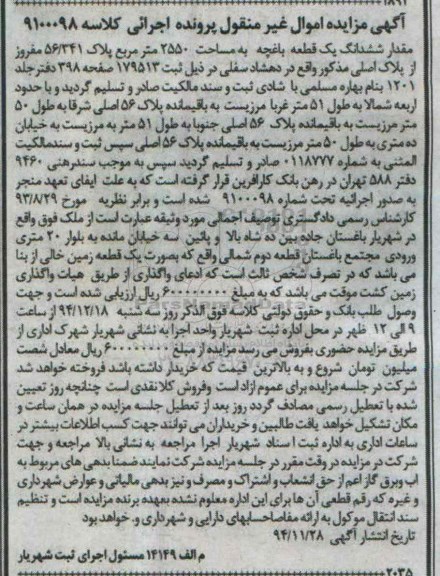 ۱۸۹۲
آگهی مزایده اموال غیر منقول پرونده اجرائی کلاسه ۹۱۰۰۰۹۸
مقدار ششدانگ یک قطعه باغچه به مساحت ۲۵۵۰ متر مربع پلاک ۵۶/۳۴۱ مفروز
از پلاک اصلی مذکور واقع در دهشاد سفلی در ذیل ثبت ۱۷۹۵۱۳ صفحه ۳۹۸ دفتر جلد
۱۲۰۱ بنام بهاره مسلمی با شادی ثبت و سند مالکیت صادر و تسلیم گردید و با حدود
اربعه شمالا به طول ۵۱ متر غربا مرزیست به باقیمانده پلاک ۵۶ اصلی شرقا به طول ۵۰
متر مرزیست به باقیمانده پلاک ۵۶ اصلی جنوبا به طول ۵۱ متر به مرزیست به خیابان
ده متری به طول ۵۰ متر مرزیست به باقیمانده پلاک ۵۶ اصلی سپس ثبت و سندمالکیت
المثنی به شماره ۰۱۱۸۷۷۷ صادر و تسلیم گردید سپس به موجب سندرهنی ۹۴۶۰
دفتر ۵۸۸ تهران در رهن بانک کارافرین قرار گرفته است که به علت ایفای تعهد منجر
به صدور اجرائیه تحت شماره ۹۱۰۰۰۹۸ شده است و برابر نظریه مورخ ۹۳/۸/۲۹
کارشناس رسمی دادگستری توصیف اجمالی مورد وثیقه عبارت است از ملک فوق واقع
در شهریار باغستان جاده بین ده شاه بالا و پائین سه خیابان مانده به بلوار ۲۰ متری
ورودی مجتمع باغستان قطعه دوم شمالی واقع که بصورت یک قطعه زمین خالی از بنا
می باشد که در تصرف شخص ثالث است که ادعای واگذاری از طریق هیات واگذاری
زمین کشت موقت می باشد که به مبلغ ۶۰۰۰۰۰۰۰۰ ریال ارزیابی شده است و جهت
وصول طلب بانک و حقوق دولتی کلاسه فوق الذکر روز سه شنبه ۹۴/۱۲/۱۸ از ساعت
۹ الی ۱۲ ظهر در محل اداره ثبت شهریار واحد اجرا به نشانی شهریار شهرک اداری از
طریق مزایده حضوری بفروش می رسد مزایده از مبلغ ۶۰۰۰۰۰۰۰۰ ریال معادل شصت
میلیون تومان شروع و به بالاترین قیمت که خریدار داشته باشد فروخته خواهد شد
شرکت در جلسه مزایده برای عموم ازاد است وفروش کلا نقدی است چنانچه روز تعیین
شده با تعطیل رسمی مصادف گردد روز بعد از تعطیل جلسه مزایده در همان ساعت و
مکان تشکیل خواهد یافت طالبین و خریداران می توانند جهت کسب اطلاعات بیشتر در
ساعات اداری به اداره ثبت اسناد شهریار اجرا مراجعه به نشانی بالا مراجعه و جهت
شرکت در مزایده در وقت مقرر در جلسه مزایده شرکت نمایند ضمنا بدهی های مربوط به
اب وبرق گاز اعم از حق انشعاب و اشتراک و مصرف و نیز بدهی مالیاتی و عوارض شهرداری
و غیره که رقم قطعی آن ها برای این اداره معلوم نشده بعهده برنده مزایده است و تنظیم
سند انتقال موکول به ارائه مفاصاحسابهای دارایی و شهرداری و. خواهد بود
تاریخ انتشار آگهی ۹۴/۱۱/۲۸
م الف ۱۴۱۴۹ مسئول اجرای ثبت شهریار
۲۰۳۵